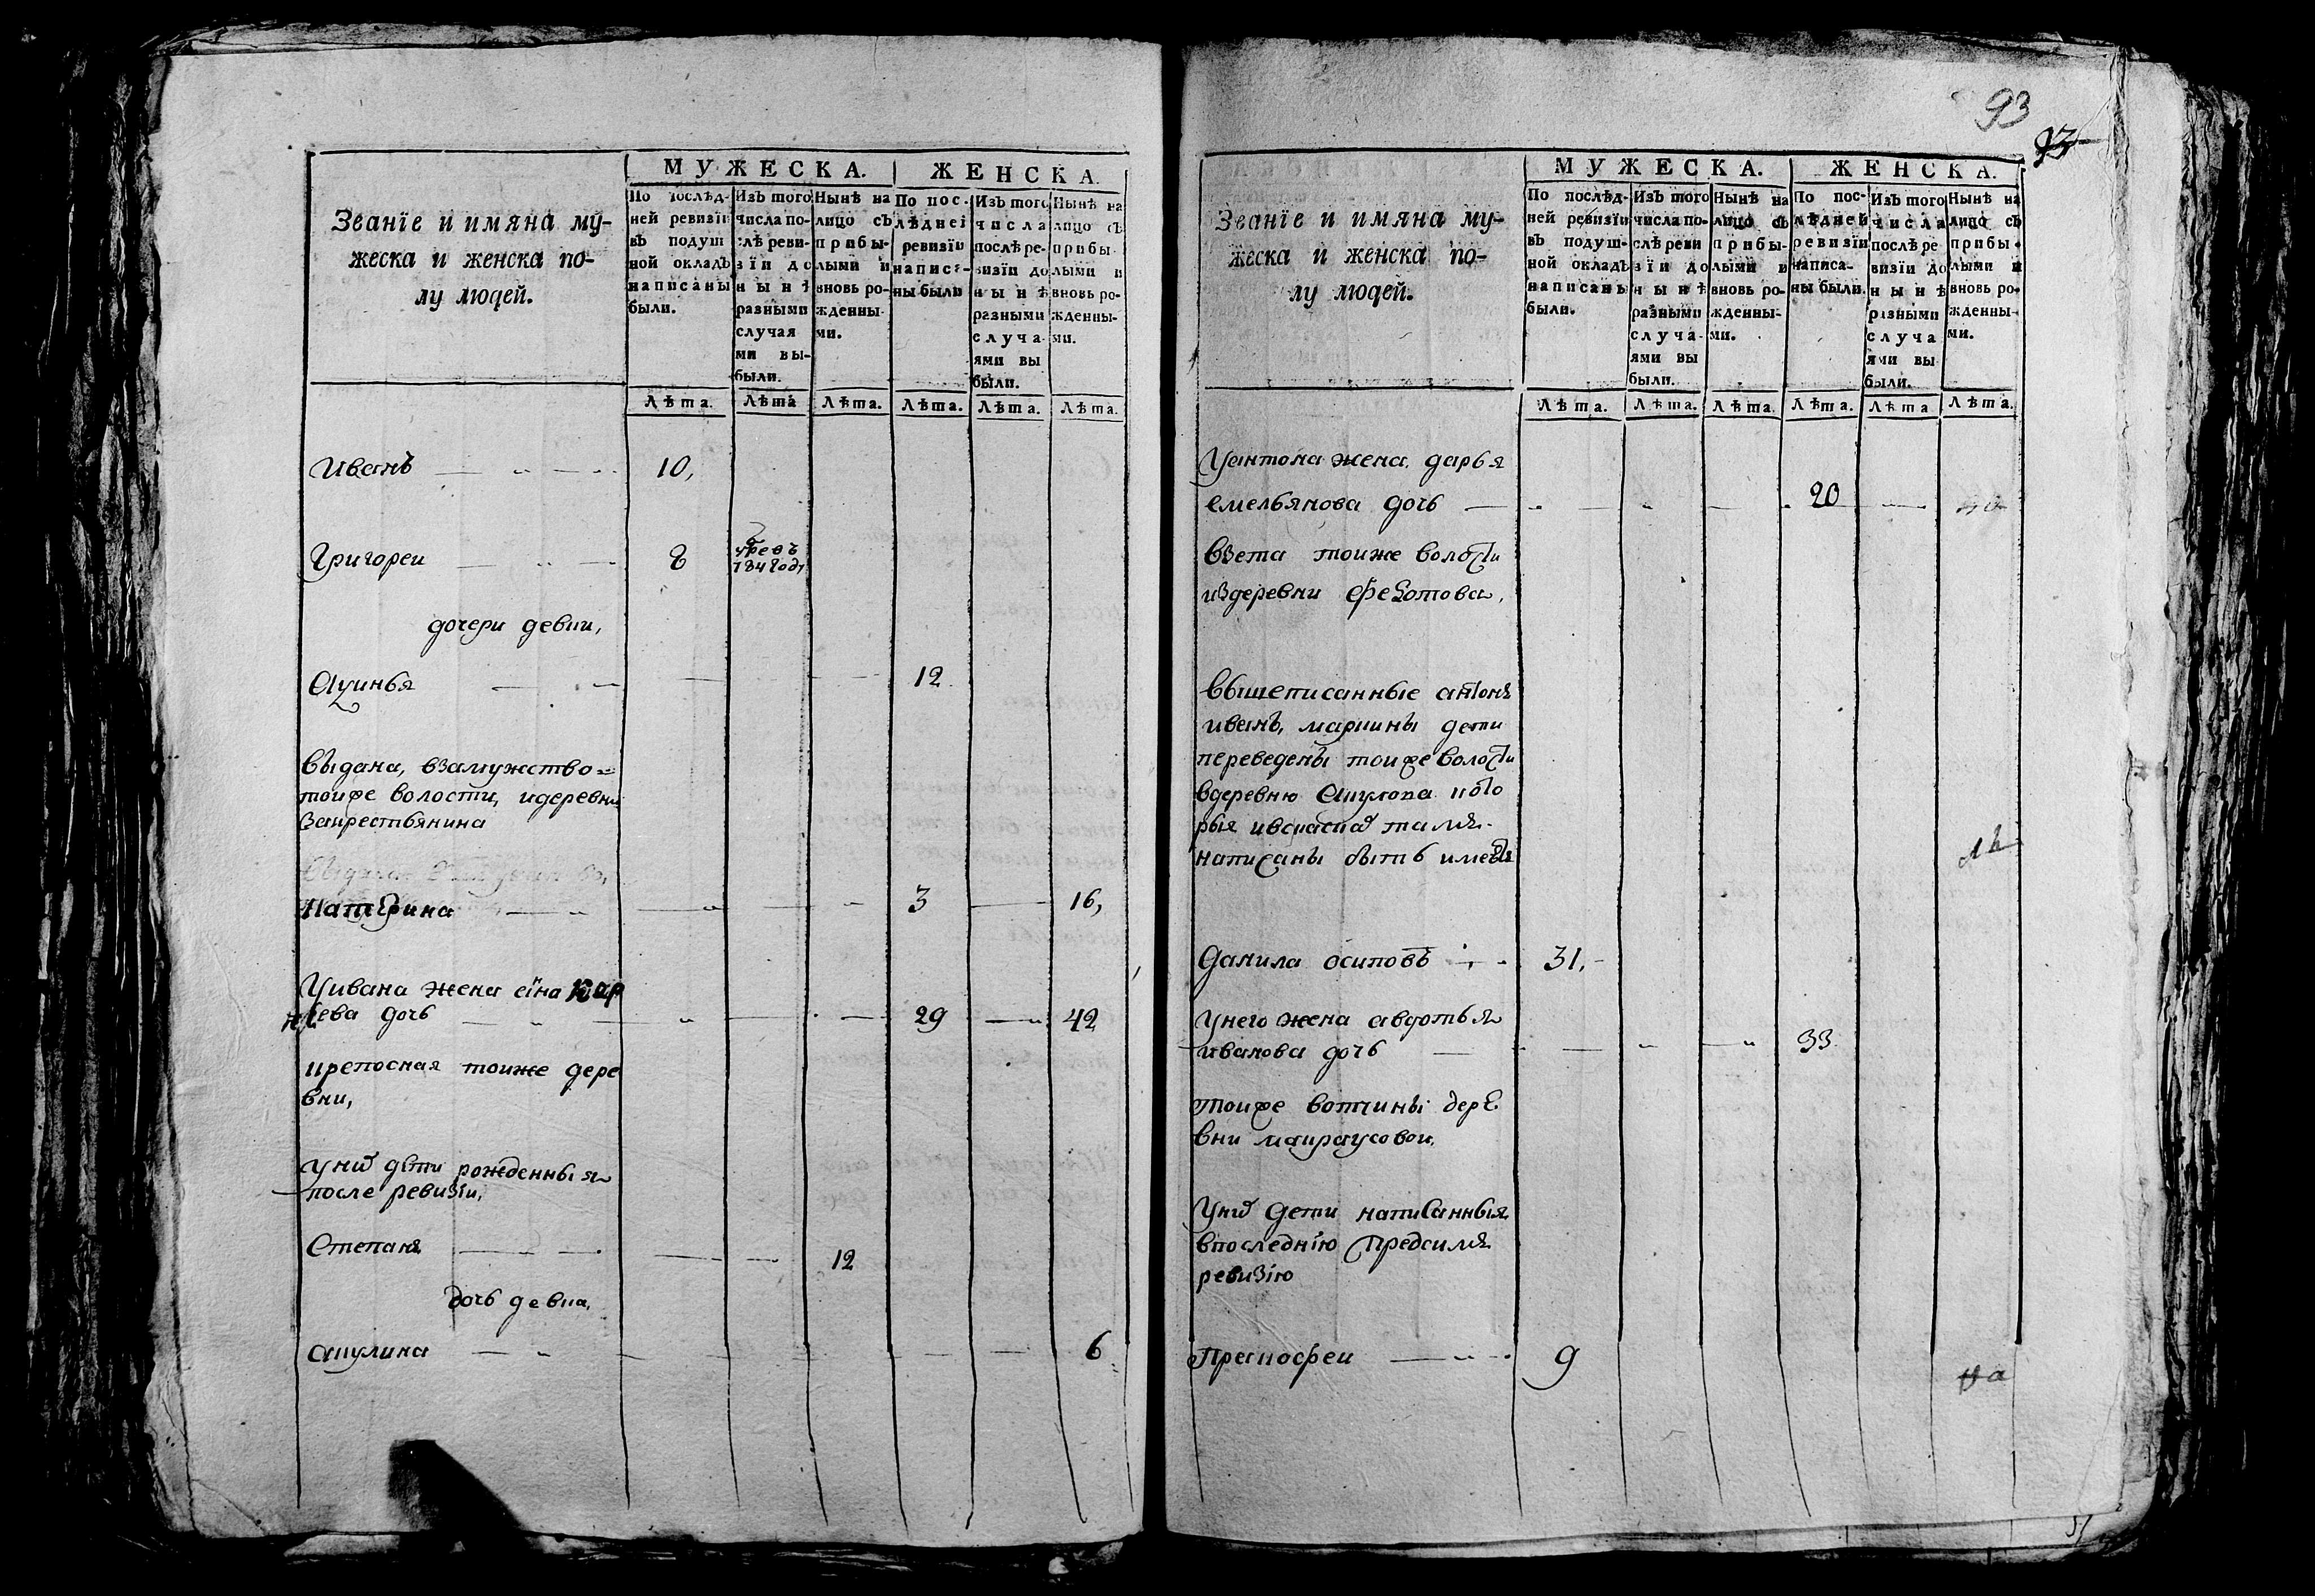 МУЖЕСКА.
ЖЕНСКА.
Званїе и имяна му-
жеска и женска по-
лу людей.
По послѣд-
ней ревизіи
въ подуш
ной окладъ
написаны
были.
Изъ того
числа по-
слѣ реви-
зїи до
нынѣ
разными
случая
ми вы-
были.
Нынѣ на
лицо съ
прибы-
лыми и
вновь ро-
жденны-
ми.
По пос-
лѣдней
ревизїи
написа-
ны были
Изъ того
числа
послѣ ре-
визїи до
нынѣ
разными
случа-
ями вы
были.
Нынѣ на
лицо съ
прибы-
лыми и
вновь ро-
жденны-
ми.
Лѣта. Лѣта Лѣта. Лѣта. Лѣта. Лѣта.
Иванъ 10,
Григореи 8
784 год,
дочери девки,
12
выдана, взамужство=
тоиже волости,
закрестьянина
Катерина 3 16,
Уивана жена
дочь 29 42
тоиже дере
вни,
Унихъ дети рожденныя
после ревизіи,
Степанъ 12
дочь девка,
акулина 6
93
93
МУЖЕСКА.
ЖЕНСКА.
Званїе и имяна му-
жеска и женска по-
лу людей.
По послѣд-
ней ревизіи
въ подуш-
ной окладъ
написаны
были.
Изъ того
числа по-
слѣ реви
зїи до
нынѣ
разными
случа-
ями вы
были.
Нынѣ на
лицо съ
прибы-
лыми и
вновь ро-
жденны-
ми.
По пос-
лѣдней
ревизїи
написа-
ны были.
Изъ того
числа
послѣ ре
визїи до
нынѣ
разными
случа
ями вы
были.
Нынѣ на
лицо съ
прибы-
лыми и
вновь ро-
жденны-
ми.
Лѣта. Лѣта. Лѣта. Лѣта. Лѣта Лѣта.
Уантона жена дарья
емельянова дочь 20
взета тоиже волости
издеревни Федотова,
вышеписанные антонъ
иванъ, дети
переведены тоиже волости
вдеревню Акулова кото
рыя тамъ
написаны быть имеютъ
Данила осиповъ 31,
Унего жена авдотья
иванова дочь 33
тоиже вотчины дере
вни
Унихъ дети написанныя
впоследнюю предсимъ
ревизію
9